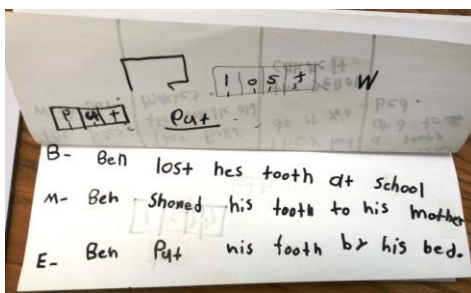 lost W
Put Put
B- Ben lost hes tooth at school
M- Ben showed his tooth to his mother
E- Ben Put his tooth by his bed.